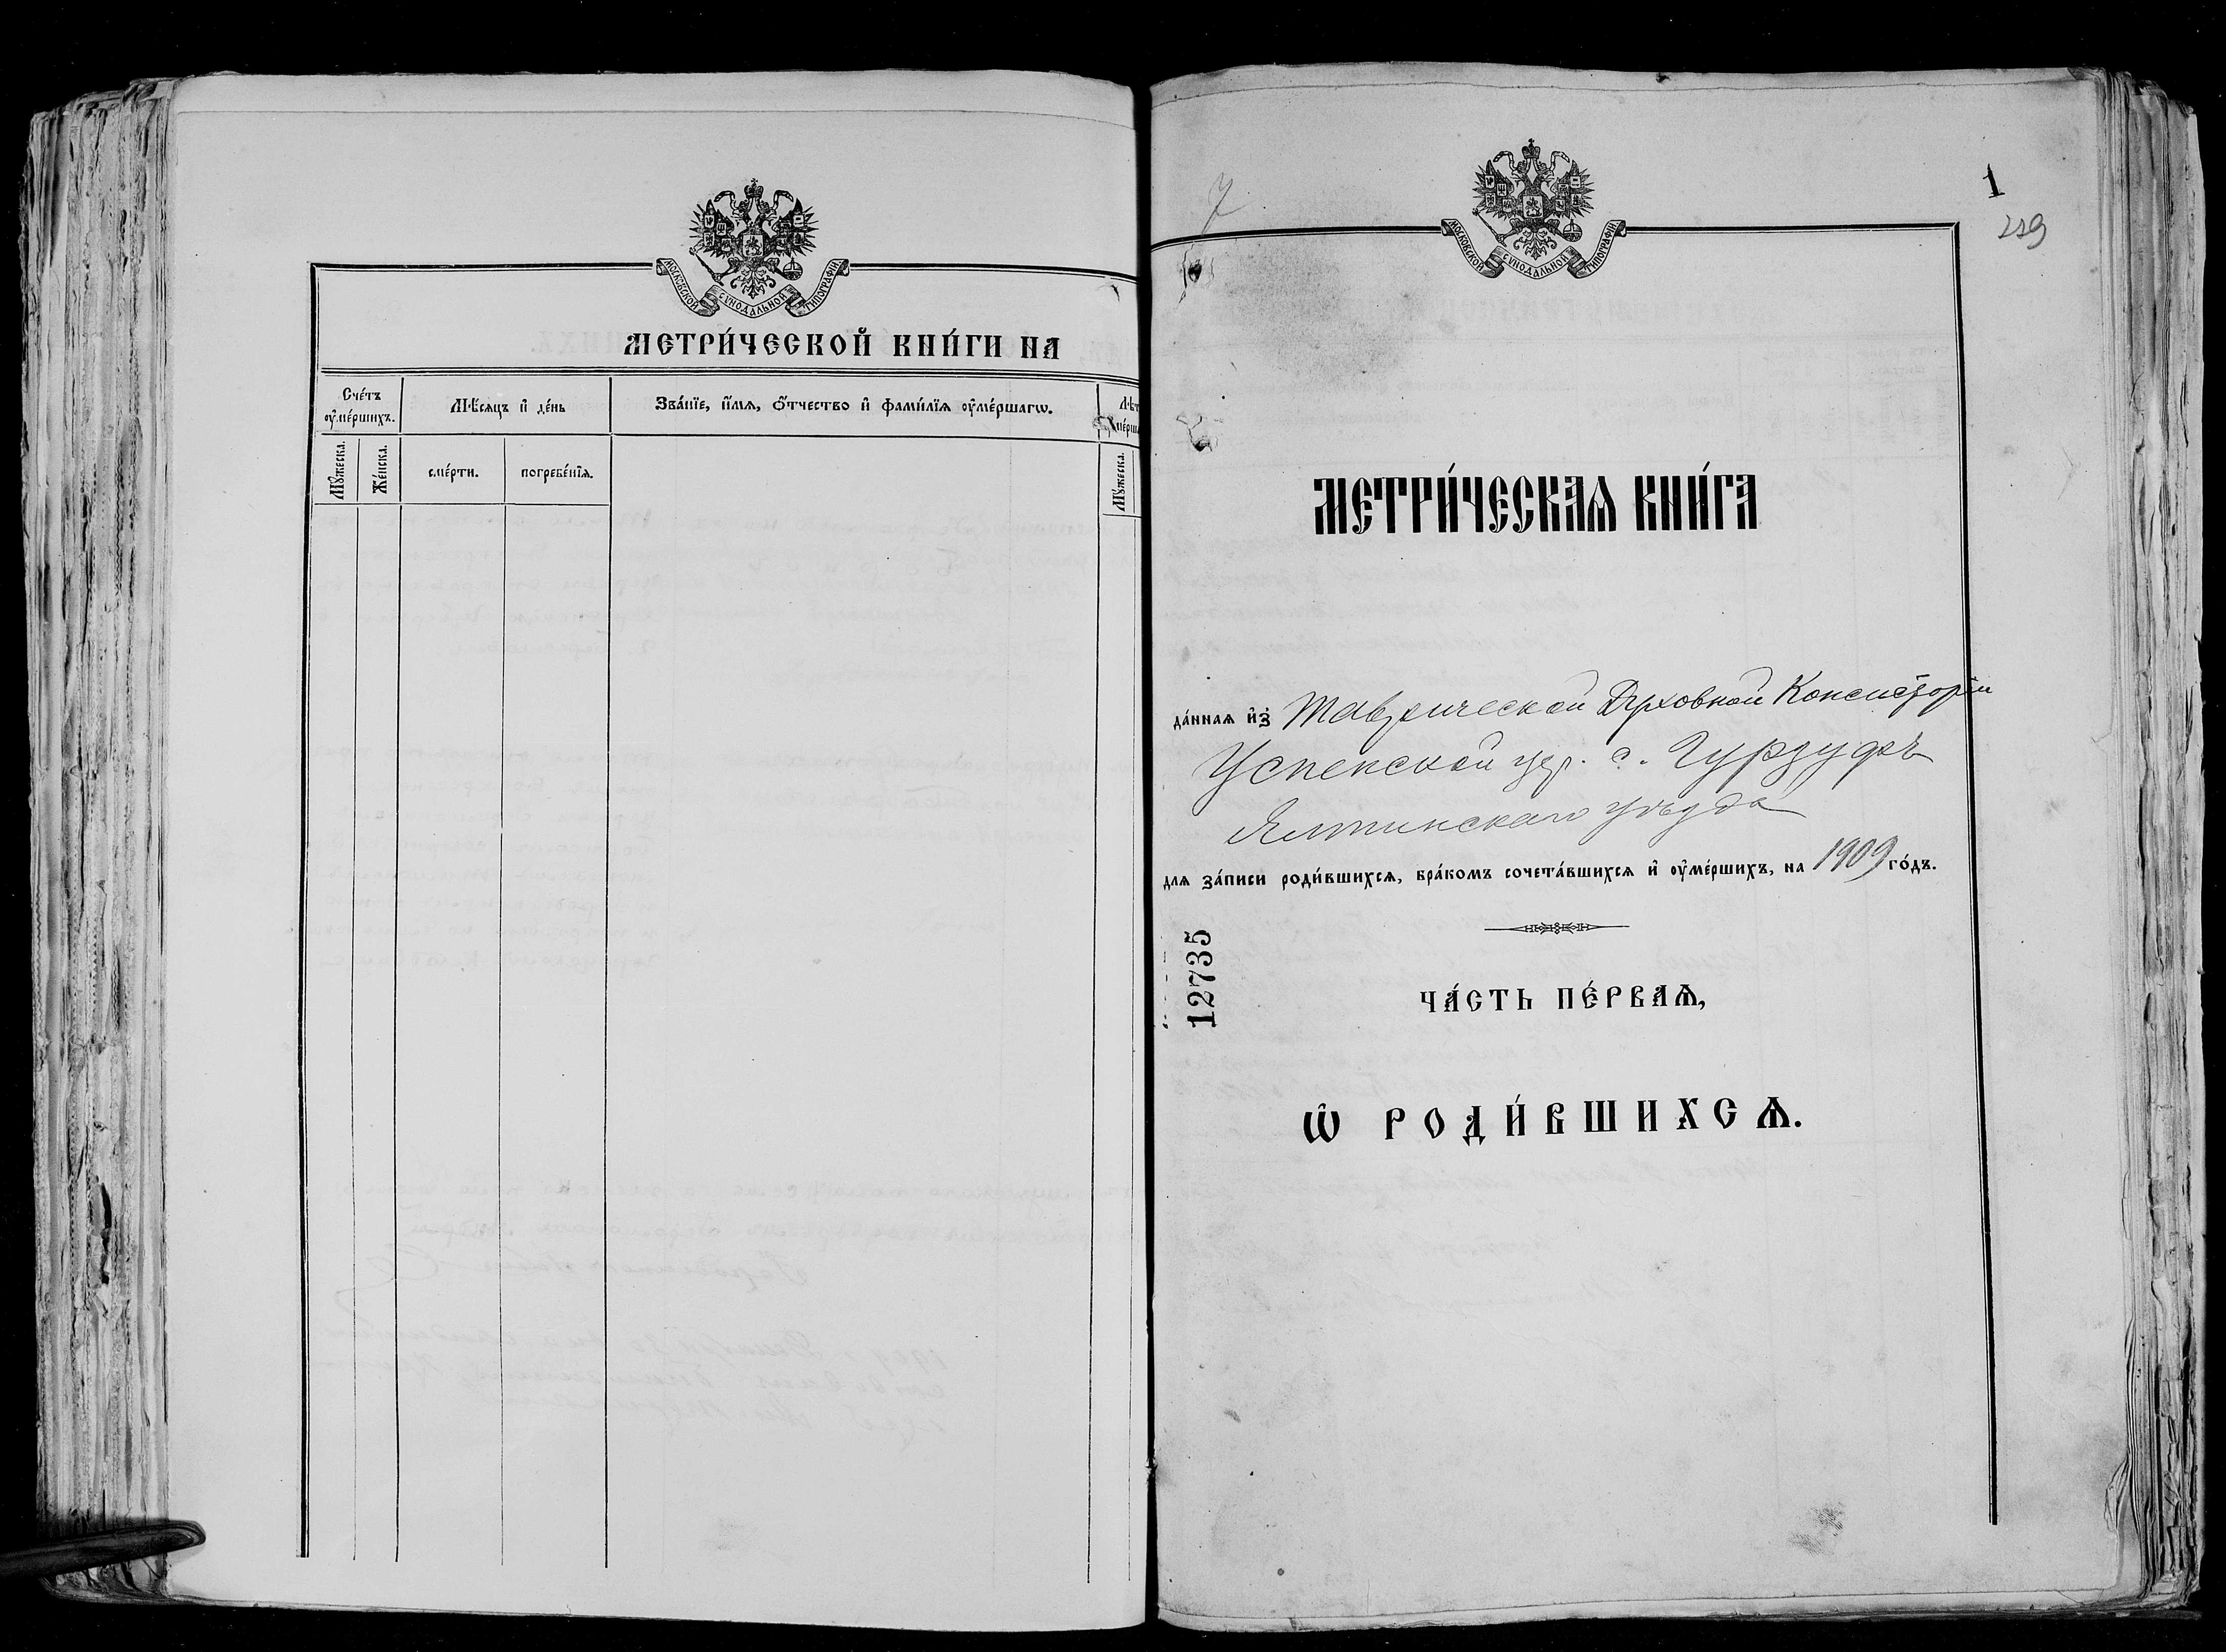 МОСКОВСКОЙ СѴНОДАЛЬНОЙ ТИПОГРАФІИ
МЕТРИ́ЧЕСКОЙ КНИ́ГИ НА
Сче́тъ ᲂу҆ме́ршихъ.
Мѣ́сяцъ и҆ де́нь
Зва́нїе, и҆́мѧ, ѻ҆́тчество и҆ фами́лїѧ ᲂу҆ме́ршагѡ.
Мꙋ́жеска.
Же́нска.
сме́рти.
погребе́нїѧ.
Мꙋ́жеска.
7
1
229
МОСКОВСКОЙ СѴНОДАЛЬНОЙ ТИПОГРАФІИ
МЕТРИ́ЧЕСКАѦ КНИ́ГА
да́ннаѧ и҆з̾ Таврической Духовной Консисторіи
Успенской цер. с. Гурзуфъ
Ялтинскаго уѣзда
для за́писи роди́вшихсѧ, бра́комъ сочета́вшихсѧ и҆ ᲂу҆ме́ршихъ, на 1909 го́дъ.
12735
ЧА́СТЬ ПЕ́РВАѦ,
Ѽ РОДИ́ВШИХСѦ.